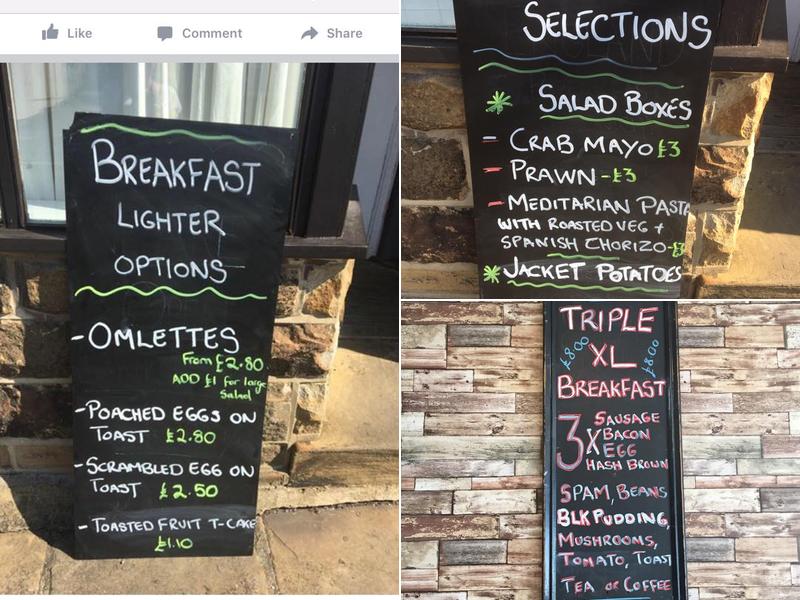 Like Comment Share
BREAKFAST
LIGHTER
OPTIONS
- OMLETTES
From £2.80
ADD £1 for large
Salad
- POACHED EGGS ON
TOAST £2.80
- SCRAMBLED EGG ON
TOAST £2.50
- TOASTED FRUIT T-CAKE
£1.10
SELECTIONS
SALAD BOXES
- CRAB MAYO £3
- PRAWN - £3
- MEDITARIAN PASTA
WITH ROASTED VEG +
SPANISH CHORIZO - £3
JACKET POTATOES
TRIPLE
£8.00 XL £8.00
BREAKFAST
3 X SAUSAGE
BACON
EGG
HASH BROWN
SPAM, BEANS
BLK PUDDING,
MUSHROOMS,
TOMATO, TOAST
TEA OR COFFEE